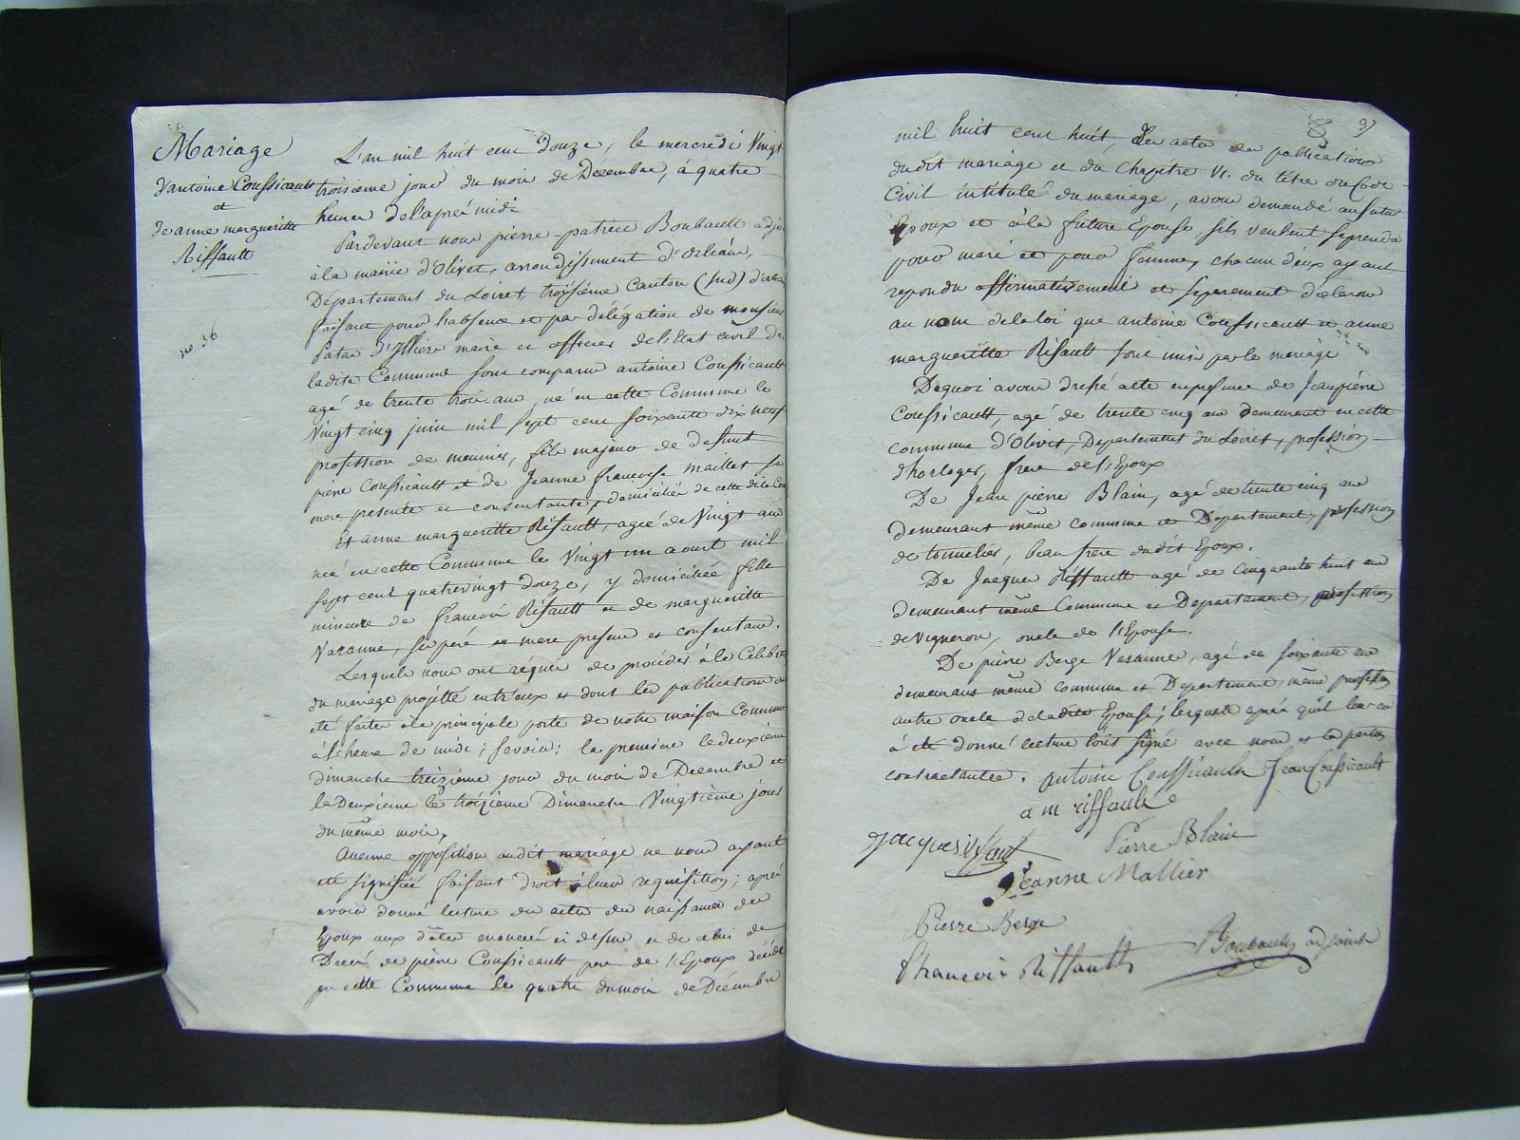 Mariage
d'antoine Coussicault
et
de anne margueritte
Riffault
no. 36
L'an mil huit cent douze, le mercredi Vingt
troisieme jour du mois de Décembre, à quatre
heures de l'aprés midi
Pardevant nous pierre-patrice Boubault adjo
à la mairie d'Olivet, arrondissement d'orléans,
Département du Loiret troisième Canton (sud)
faisant pour l'absence et par délégation de monsieur
maire et officier de l'état civil de
ladite Commune sont comparus antoine Coussicault
agé de trente trois ans, né en cette Commune le
Vingt cinq juin mil sept cent soixante dix neuf
profession de meunier, fils majeur de defunt
pierre Coussicault et de Jeanne francoise maillet sa
mere presente et consentante, domiciliée de cette dite Com
Et anne marguerette Rifault, agée de Vingt ans
née en cette Commune le Vingt un aoust mil
sept cent quatrevingt douze, y domiciliée fille
mineure de francois Rifault et de margueritte
Vazanne, ses père et mere presens et consentans.
Lesquels nous ont requis de procéder à la Célébra
du mariage projetté entr'eux et dont les publications o
été faites à la principale porte de notre maison Commune
à l'heure de midi; savoir: la premiere le deuxieme
dimanche treizieme jour du mois de Decembre et
la Deuxieme le troizieme Dimanche Vingtième jour
du même mois.
Aucune opposition audit mariage ne nous ayant
été signifiée faisant droit à leur requisition; après
avoir donné lecture des actes de naissance des
Epoux aux dates enoncées ci dessus et de celui de
Décès de pierre Coussicault pere de l'Epoux décédé
en cette Commune le quatre du mois de Décembre
mil huit cent huit, Des actes de publications
dudit mariage et du Chapitre VI. du titre du Code
Civil intitulé du mariage, avons demandé au futur
Epoux et à la future Epouse s'ils veulent se prendre
pour mari et pour femme, chacun d'eux ayant
repondu affirmativement et separement declarons
au nom de la loi que antoine Coussicault et anne
marguerette Rifault sont unis par le mariage
De quoi avons dressé acte en presence de Jean pierre
Coussicault, agé de trente cinq ans demeurant en cette
commune d'Olivet, Departement du Loiret, profession
d'horloger, frere de l'Epoux
De Jean pierre Blain, agé de trente cinq ans
demeurant même commune et Departement, profession
de tonnelier, beau frere dudit Epoux.
De Jacques Riffault agé de cinquante huit ans
demeurant même Commune et Departement, profession
de Vigneron, oncle de l'Epouse.
De pierre Berge Vazanne, agé de soixante ans
demeurant même commune et Departement, même profession
autre oncle de ladite Epouse; lesquels après qu'il leur en
à été donné lecture l'ont signé avec nous et les parties
contractantes. Antoine Coussicault Jean Coussicault
a m riffault
Pierre Blain
Jeanne Mallier
Pierre Berge
francois Riffault Boubault adjoint